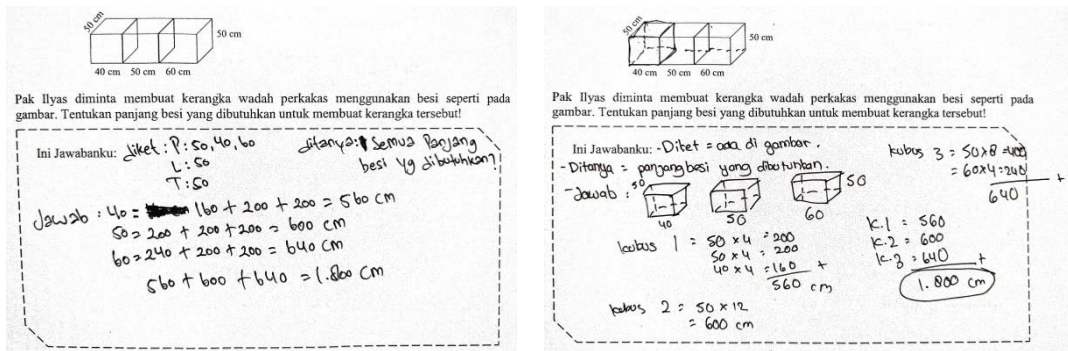 50 cm
50 cm
40 cm 50 cm 60 cm
Pak Ilyas diminta membuat kerangka wadah perkakas menggunakan besi seperti pada
gambar. Tentukan panjang besi yang dibutuhkan untuk membuat kerangka tersebut!
Ini Jawabanku: diket : P : 50, 40, 60
L : 50
T : 50
ditanya : Semua Panjang
besi yg dibutuhkan?
Jawab : 40 = 160 + 200 + 200 = 560 cm
50 = 200 + 200 + 200 = 600 cm
60 = 240 + 200 + 200 = 640 cm
560 + 600 + 640 = 1.800 cm
50 cm
50 cm
40 cm 50 cm 60 cm
Pak Ilyas diminta membuat kerangka wadah perkakas menggunakan besi seperti pada
gambar. Tentukan panjang besi yang dibutuhkan untuk membuat kerangka tersebut!
Ini Jawabanku: - Diket = ada di gambar.
- Ditanya = panjang besi yang dibutuhkan.
- Jawab : 50
40 50 60 50
kubus 1 = 50 x 4 = 200
50 x 4 = 200
40 x 4 = 160 +
560 cm
kubus 2 = 50 x 12
= 600 cm
kubus 3 = 50 x 8 = 400
= 60 x 4 = 240 +
640
k.1 = 560
k.2 = 600
k.3 = 640 +
1.800 cm